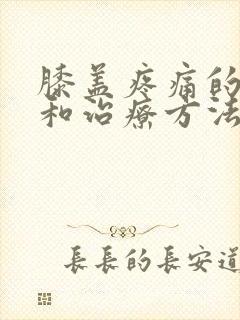 膝盖疼痛的
和治疗方法
長長的長安道